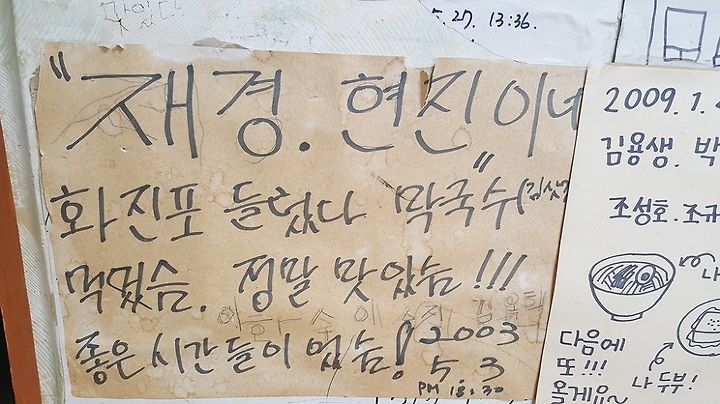 5.27. 13:36.
"재경. 현진이네"
화진포 들렀다 막국쉬
먹었슴. 정말 맛있슴!!!
좋은 시간들이 었슴!
2003
5 3
PM 18:30
2009.1.
김용생. 박
조성호. 조규
나
다음에
또!!!
올게요~
나 두부!